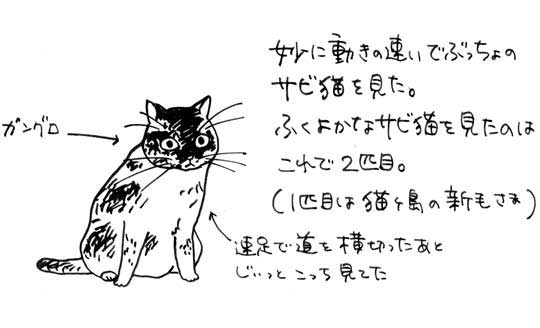 妙に動きの速いでぶっちょの
サビ猫を見た。
ふくよかなサビ猫を見たのは
これで2匹目。
(1匹目は猫ヶ島の新毛さま)
ガングロ
速足で道を横切ったあと
じぃっとこっち見てた